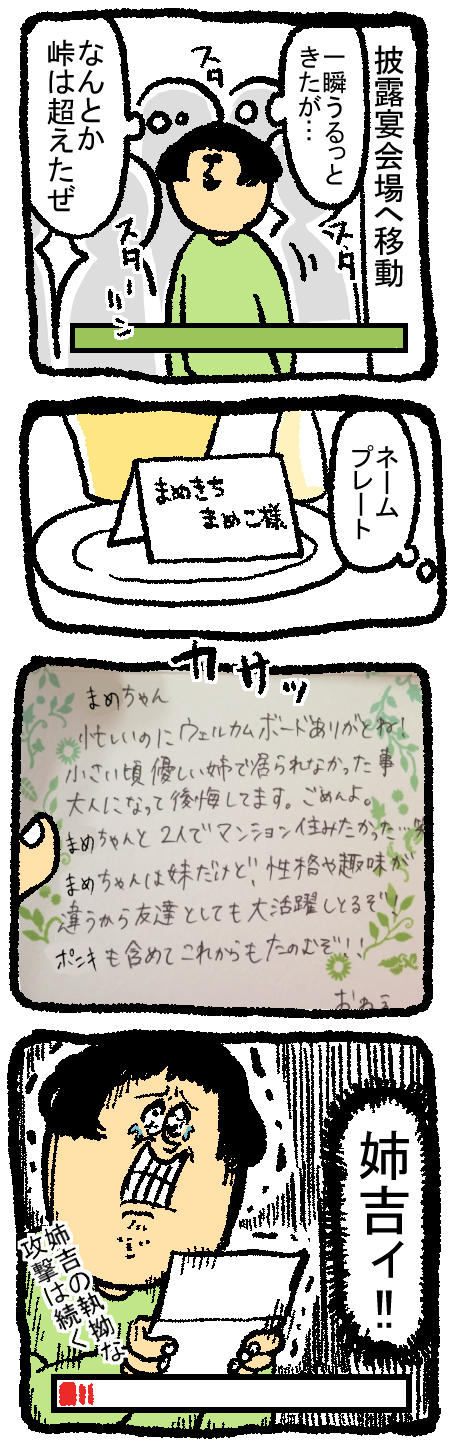 披露宴会場へ移動
一瞬うるっと
きたが…
なんとか
峠は超えたぜ
スタ
スタ
スターン
ネーム
プレート
まめきち
まめこ様
カサッ
まめちゃん
忙しいのにウェルカムボードありがとね!
小さい頃優しい姉で居られなかった事
大人になって後悔してます。ごめんよ。
まめちゃんと2人でマンション住みたかった…笑
まめちゃんは妹だけど、性格や趣味が
違うから友達としても大活躍しとるぞ!
ポンキも含めてこれからもたのむぞ!!
おねえ
姉吉ィ!!
姉吉の執拗な
攻撃は続く